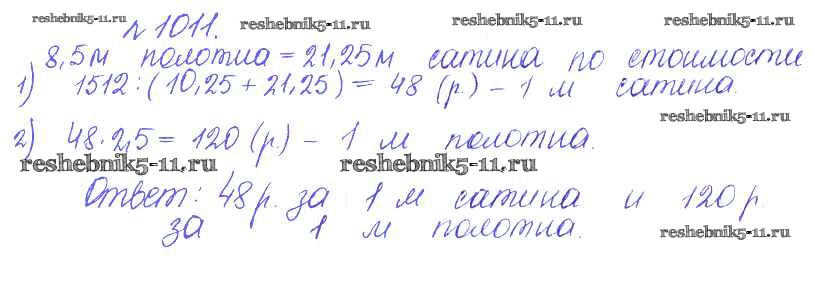 № 1011. reshebnik5-11.ru reshebnik5-11.ru reshebnik5-11.ru
8,5м полотна = 21,25м сатина по стоимости
1) 1512:(10,25+21,25) = 48 (р.) – 1 м сатина.
reshebnik5-11.ru
2) 48·2,5 = 120 (р.) – 1 м полотна.
reshebnik5-11.ru reshebnik5-11.ru
Ответ: 48р. за 1 м сатина и 120р.
за 1 м полотна. reshebnik5-11.ru